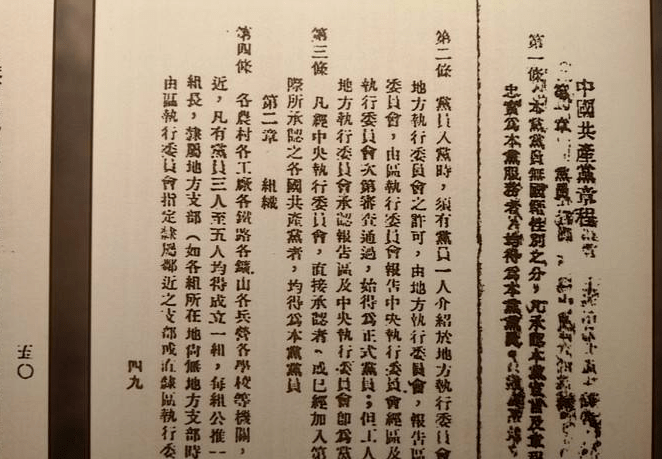 中國共產黨章程
第一章 黨員
第一條 本黨黨員無國籍性別之分，凡承認本黨宣言及章程
忠實為本黨服務者，均得為本黨黨員
第二條 黨員入黨時，須有黨員一人介紹於地方執行委員會
地方執行委員會之許可，由地方執行委員會，報告區
委員會，由區執行委員會報告中央執行委員會經區及
執行委員會次第審查通過，始得為正式黨員；但工人
地方執行委員會承認報告區及中央執行委員會即為黨
第三條 凡經中央執行委員會，直接承認者，或已經加入第
際所承認之各國共產黨者，均得為本黨黨員
第二章 組織
第四條 各農村各工廠各鐵路各鑛山各兵營各學校等機關，
近，凡有黨員三人至五人均得成立一組，每組公推一
組長，隸屬地方支部（如各組所在地尚無地方支部時
由區執行委員會指定隸屬鄰近之支部或直隸區執行委
四九
五〇